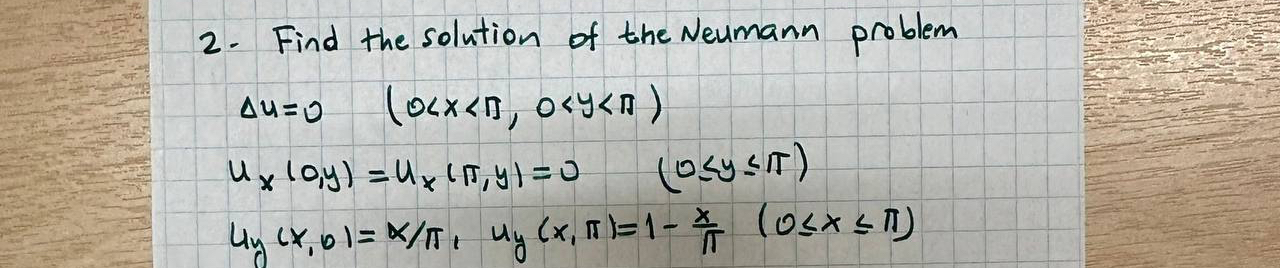 2- Find the solution of the Neumann problem
Δu=0 (0<x<π, 0<y<π)
u_x (0,y) = u_x (π, y) = 0 (0≤y≤π)
u_y (x, 0) = x/π, u_y (x, π) = 1 - x/π (0≤x≤π)